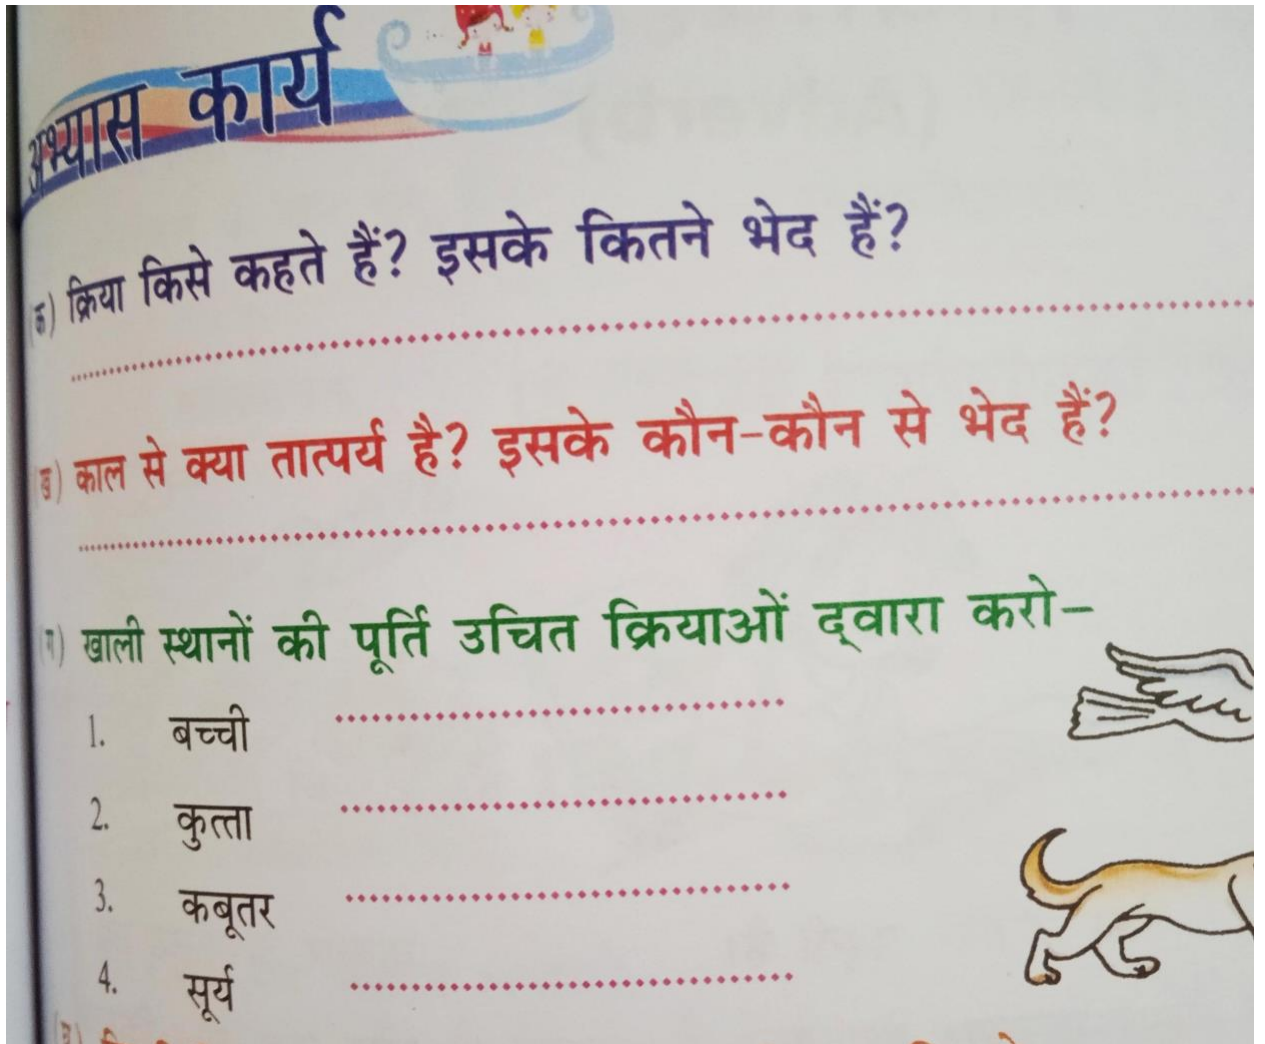 अभ्यास कार्य
(क) क्रिया किसे कहते हैं? इसके कितने भेद हैं?
(ख) काल से क्या तात्पर्य है? इसके कौन-कौन से भेद हैं?
(ग) खाली स्थानों की पूर्ति उचित क्रियाओं द्वारा करो–
1. बच्ची
2. कुत्ता
3. कबूतर
4. सूर्य